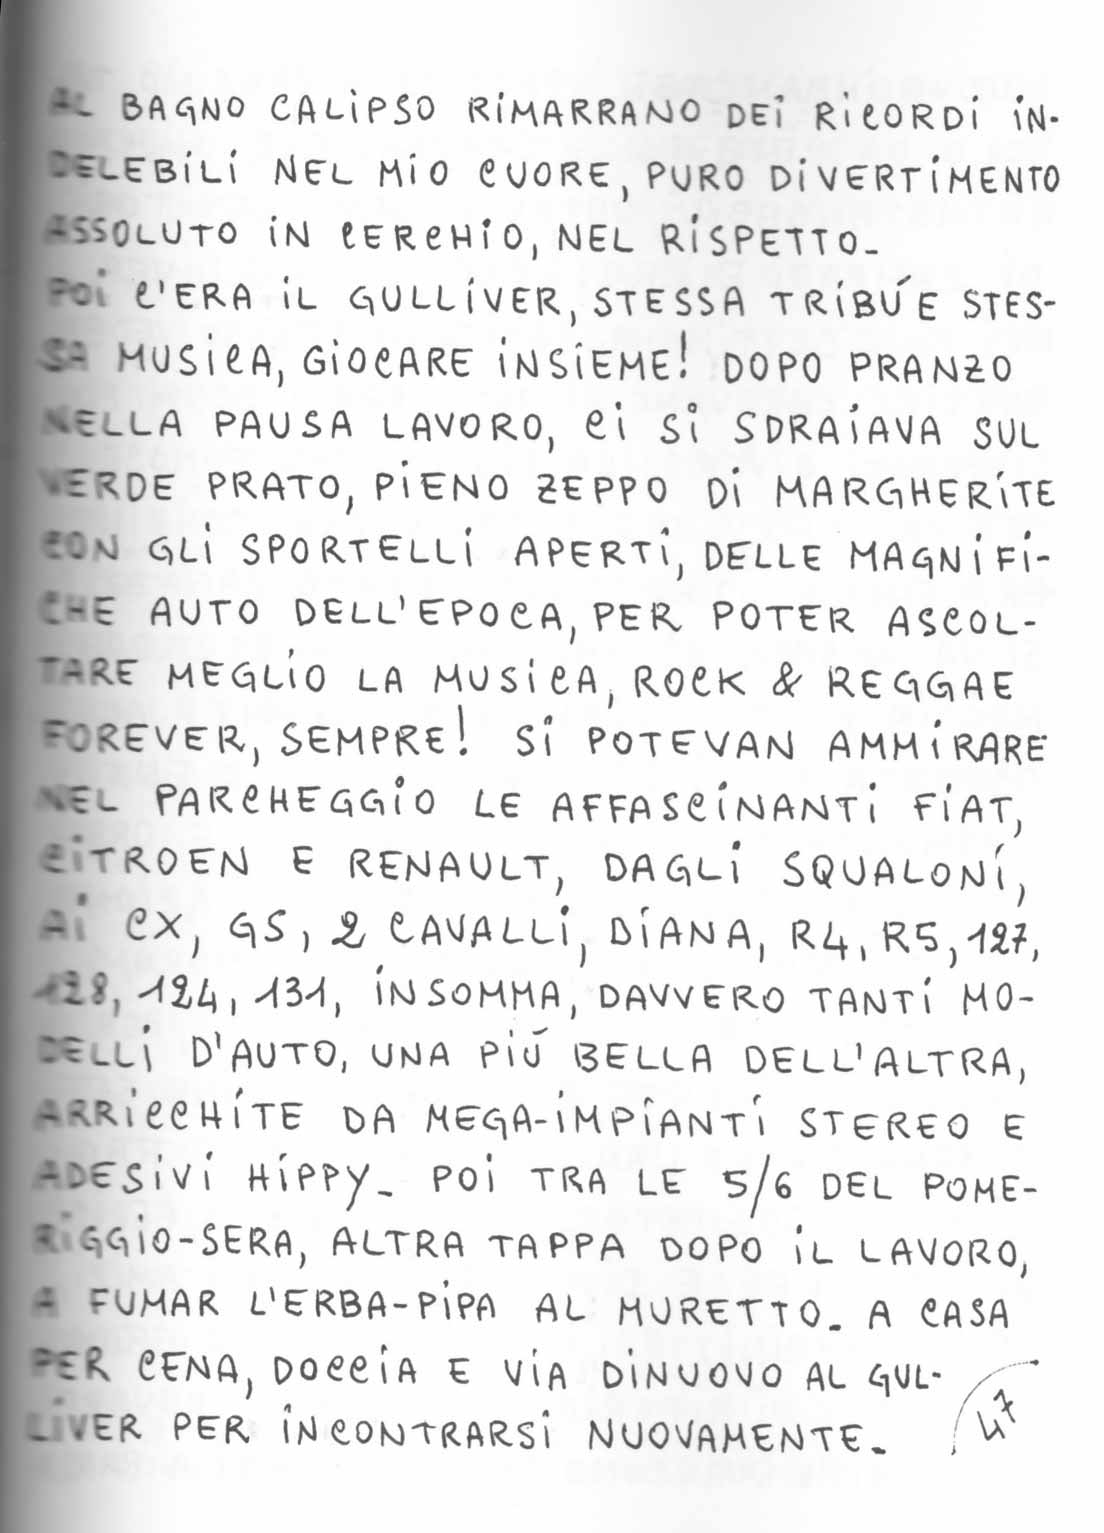 AL BAGNO CALIPSO RIMARRANO DEI RICORDI IN-
DELEBILI NEL MIO CUORE, PURO DIVERTIMENTO
ASSOLUTO IN CERCHIO, NEL RISPETTO_
POI C'ERA IL GULLIVER, STESSA TRIBÚ E STES-
SA MUSICA, GIOCARE INSIEME! DOPO PRANZO
NELLA PAUSA LAVORO, CI SI SDRAIAVA SUL
VERDE PRATO, PIENO ZEPPO DI MARGHERITE
CON GLI SPORTELLI APERTI, DELLE MAGNIFI-
CHE AUTO DELL'EPOCA, PER POTER ASCOL-
TARE MEGLIO LA MUSICA, ROCK & REGGAE
FOREVER, SEMPRE! SI POTEVAN AMMIRARE
NEL PARCHEGGIO LE AFFASCINANTI FIAT,
CITROEN E RENAULT, DAGLI SQUALONI,
AI CX, GS, 2 CAVALLI, DIANA, R4, R5, 127,
128, 124, 131, INSOMMA, DAVVERO TANTI MO-
DELLI D'AUTO, UNA PIÚ BELLA DELL'ALTRA,
ARRICCHITE DA MEGA-IMPIANTI STEREO E
ADESIVI HIPPY_ POI TRA LE 5/6 DEL POME-
RIGGIO-SERA, ALTRA TAPPA DOPO IL LAVORO,
A FUMAR L'ERBA-PIPA AL MURETTO_ A CASA
PER CENA, DOCCIA E VIA DINUOVO AL GUL-
LIVER PER INCONTRARSI NUOVAMENTE_
47